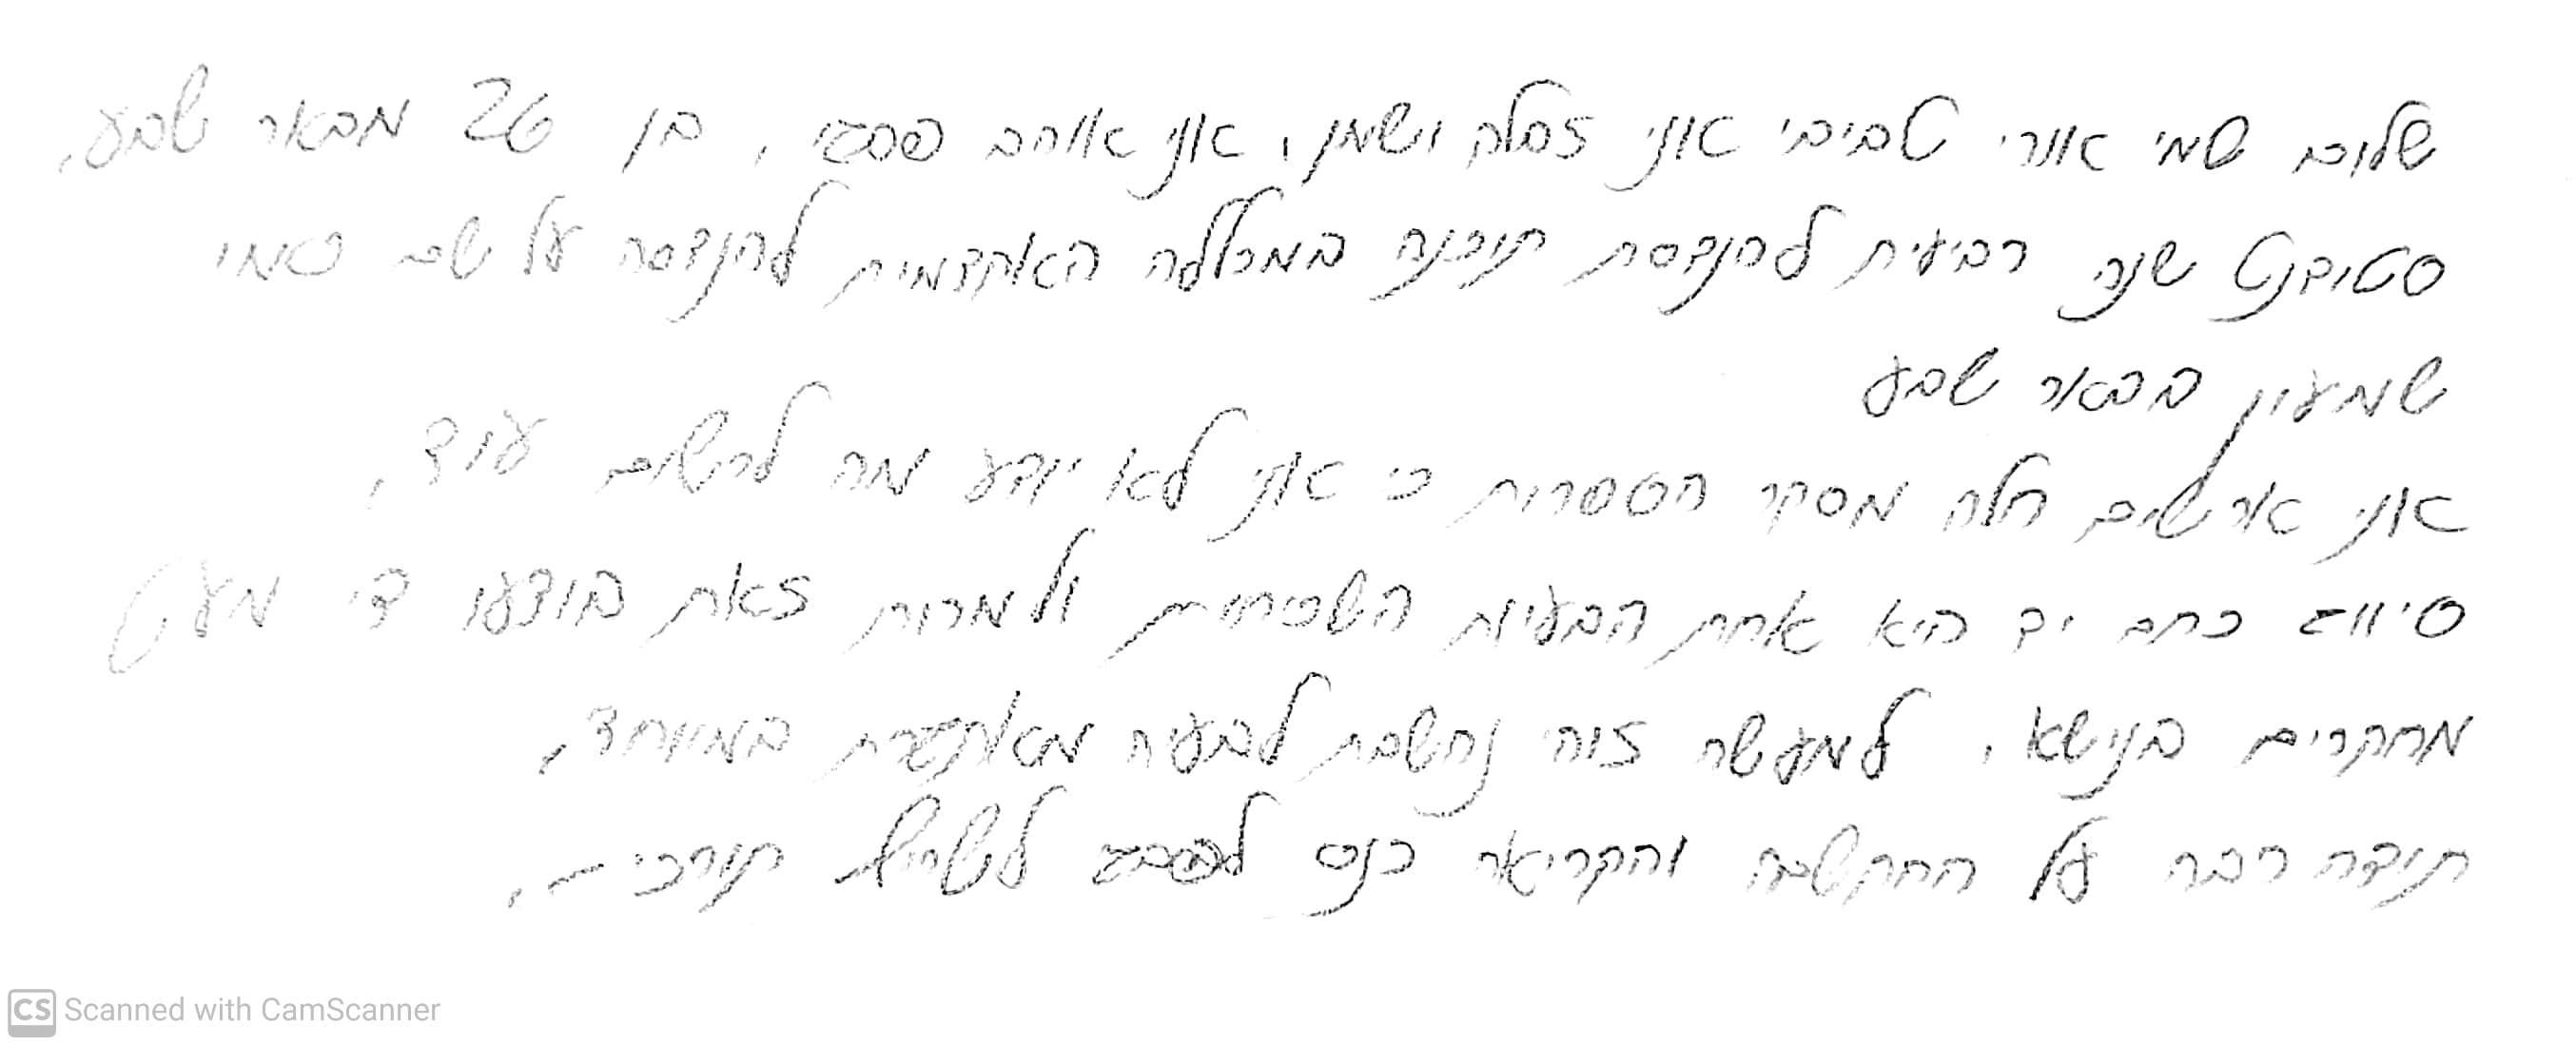 שלום שמי אורי טביבי אני זמלה ושמן, אני אוהב פסטי, בן 26 מבאר שבע,
סטודנט שנה רביעית להנדסת תוכנה במכללה האקדמית להנדסה על שם סמי
שמעון בבאר שבע
אני ארשום חלק מסקר הספרות כי אני לא יודע מה לרשום עוד,
סיווג כתב יד היא אחת הבעיות השכיחות ולמרות זאת בוצעו די מעט
מחקרים בנושא, למעשה זוהי נחשבת לבעיה מאתגרת במיוחד,
תודה רבה על ההקשבה והקריאה כנס תורכי,
Scanned with CamScanner